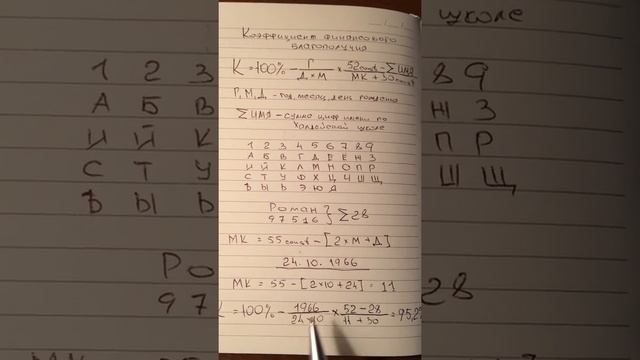 Коэффициент финансового
благополучия
К = 100% - Г / Д × М × 52const - ΣИМЯ / МК + 30const
Г, М, Д - год, месяц, день рождения
ΣИМЯ - сумма цифр имени по
Халдейской школе
1 2 3 4 5 6 7 8 9
А Б В Г Д Е Ё Ж З
И Й К Л М Н О П Р
С Т У Ф Х Ц Ч Ш Щ
Ъ Ы Ь Э Ю Я
Роман } Σ28
97516
МК = 55const - [2×М+Д]
24.10.1966
МК = 55 - [2×10+24] = 11
= 100% - 1966 / 24×10 × 52-28 / 11+30 = 95,2
школе
1 2 3
8 9
А Б В
Ж З
И Й К
П Р
С Т У
Ш Щ
Ъ Ы Ь
Ро
97
28